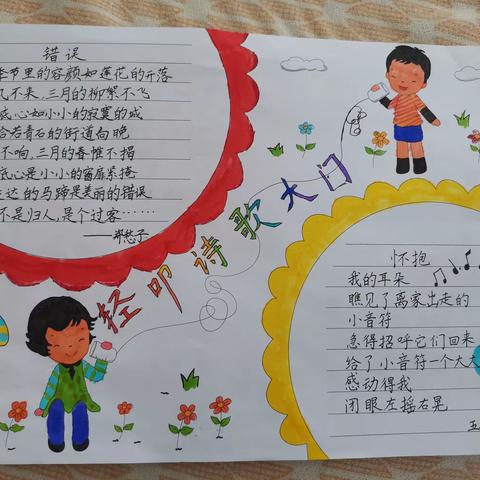 错误
季节里的容颜如莲花的开落
不来,三月的柳絮不飞
底心如小小的寂寞的城
若青石的街道向晚
不响,三月的春帷不揭
底心是小小的窗扉紧掩
达的马蹄是美丽的错误
不是归人,是个过客……
——郑愁予
轻叩诗歌大门
怀抱
我的耳朵
瞧见了离家出走的
小音符
急得招呼它们回来
给了小音符一个大大
感动得我
闭眼左摇右晃
五